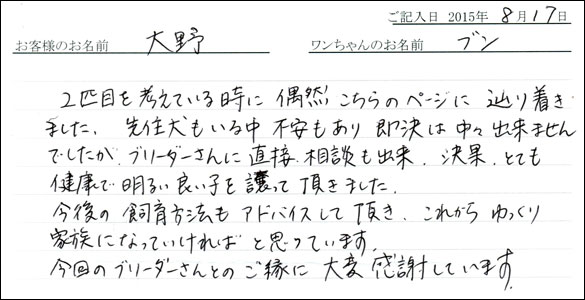 ご記入日 2015年 8月17日
お客様のお名前 大野 ワンちゃんのお名前 ブン
2匹目を考えている時に 偶然 こちらのページに 辿り着き
ました。先住犬もいる中 不安もあり 即決は 中々 出来ません
でしたが、ブリーダーさんに 直接 相談も出来、決果、とても
健康で 明るい 良い子を 譲って 頂きました。
今後の 飼育方法も アドバイスして 頂き、これから ゆっくり
家族になっていければ と思っています。
今回のブリーダーさんとの ご縁に 大変 感謝しています。